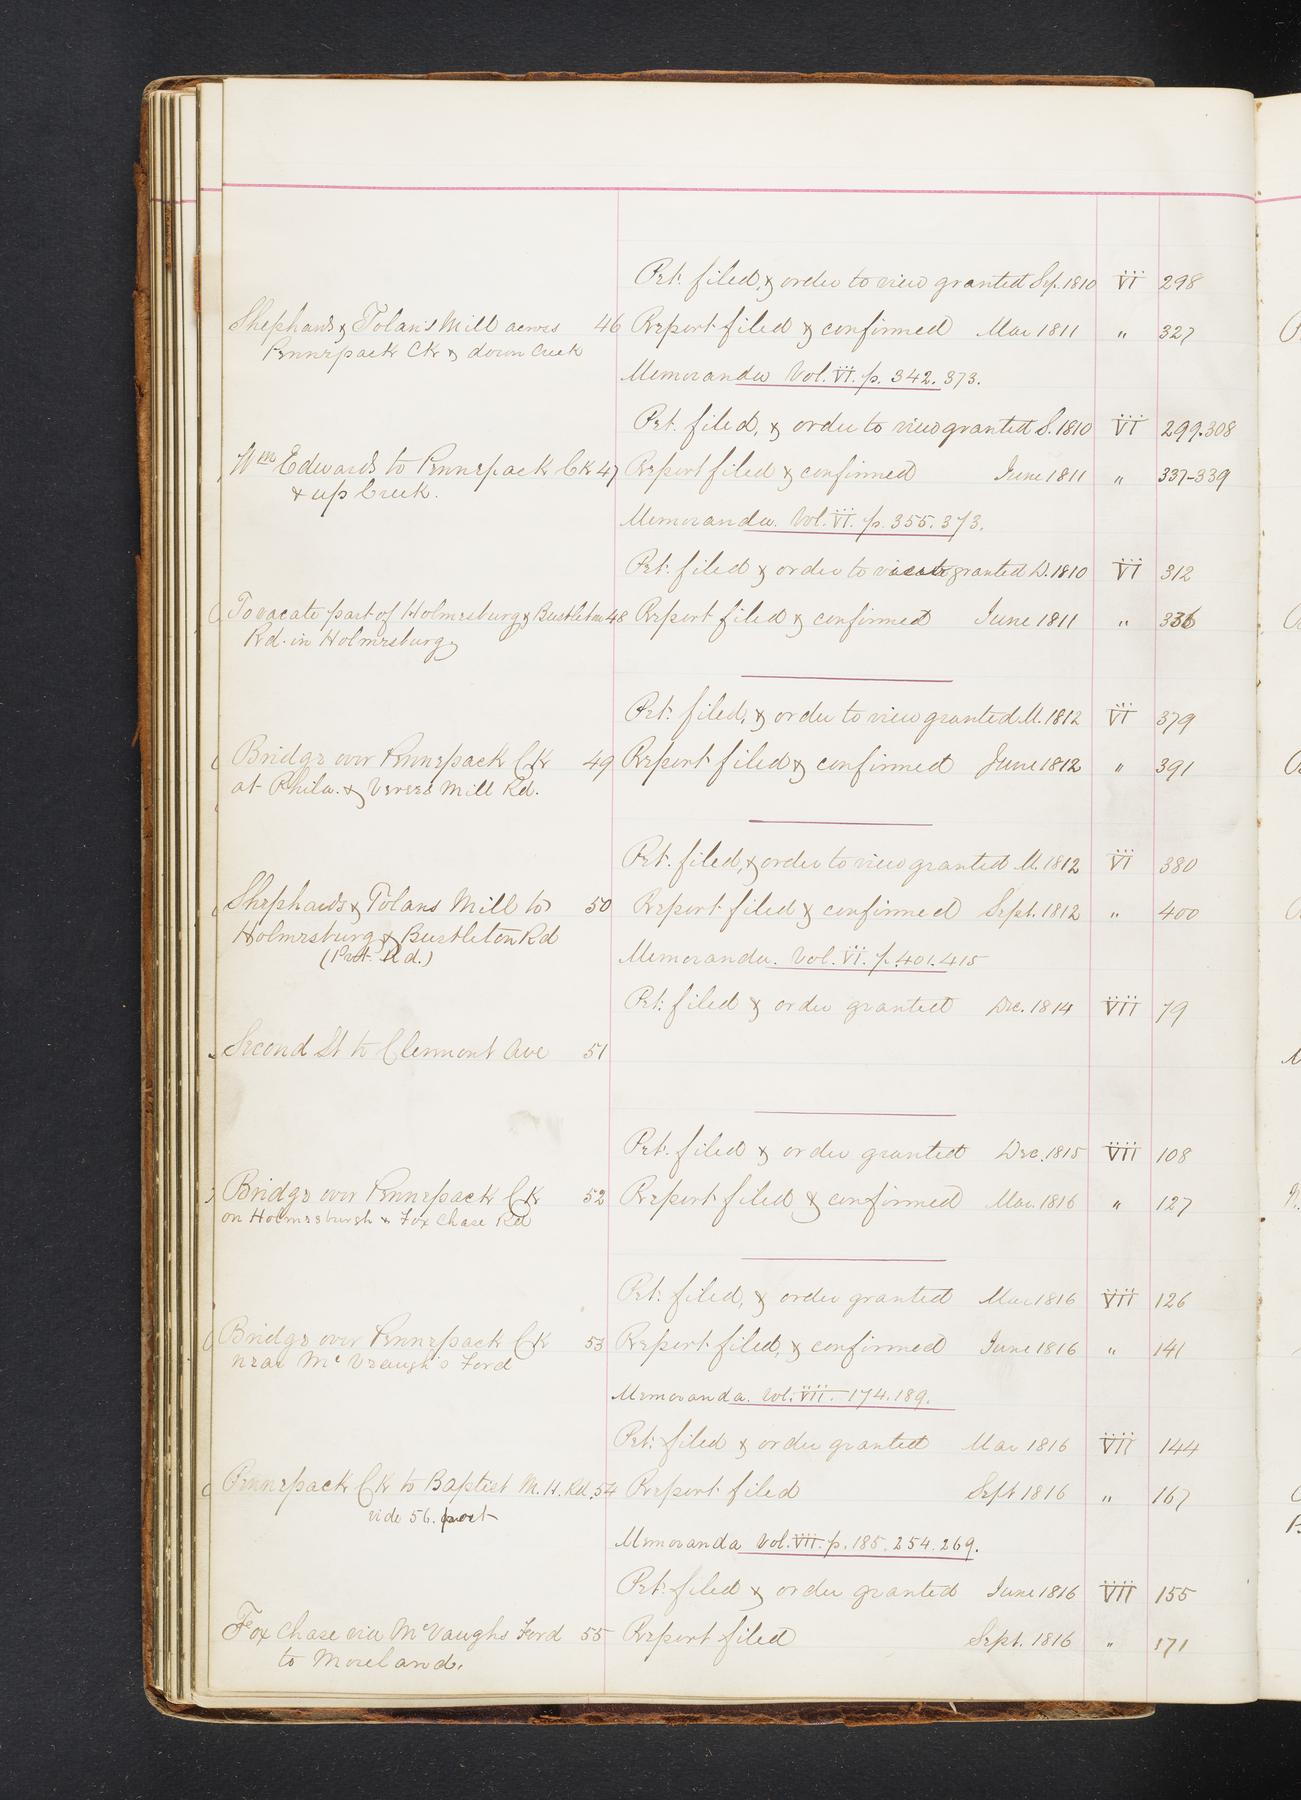 Pet. filed, & order to view granted Sep. 1810 VI 298
Shephards & Tolans Mill across 46 Report filed & confirmed Mar 1811 " 327
Pennepack Ck & down Creek
Memoranda Vol. VI. p. 342. 373.
Pet. filed, & order to view granted S. 1810 VI 299.308
Wm Edwards to Pennepack Ck 47 Report filed & confirmed June 1811 " 337-339
& up Creek.
Memoranda. Vol. VI. p. 355. 373.
Pet. filed & order to vacate granted D. 1810 VI 312
To vacate part of Holmesburg & Bustleton 48 Report filed & confirmed June 1811 " 336
Rd. in Holmesburg
Pet. filed, & order to view granted M. 1812 VI 379
Bridge over Pennepack Ck 49 Report filed & confirmed June 1812 " 391
at Phila. & Verees Mill Rd.
Pet. filed, & order to view granted M. 1812 VI 380
Shephards & Tolans Mill to 50 Report filed & confirmed Sept. 1812 " 400
Holmesburg & Bustleton Rd
(Pvt. Rd.)
Memoranda. Vol. VI. p. 401. 415
Pet. filed & order granted Dec. 1814 VII 79
Second St to Clermont Ave 51
Pet. filed & order granted Dec. 1815 VII 108
Bridge over Pennepack Ck 52 Report filed & confirmed Mar. 1816 " 127
on Holmesburgh & Fox Chase Rd
Pet. filed, & order granted Mar 1816 VII 126
Bridge over Pennepack Ck 53 Report filed, & confirmed June 1816 " 141
near Mc Veaugh's Ford
Memoranda. Vol. VII. 174. 189.
Pet. filed & order granted Mar 1816 VII 144
Pennepack Ck to Baptist M. H. Rd. 54 Report filed Sept 1816 " 167
vide 56. post
Memoranda Vol. VII. p. 185. 254. 269.
Pet. filed & order granted June 1816 VII 155
Fox Chase via McVaughs Ford 55 Report filed Sept. 1816 " 171
to Moreland.